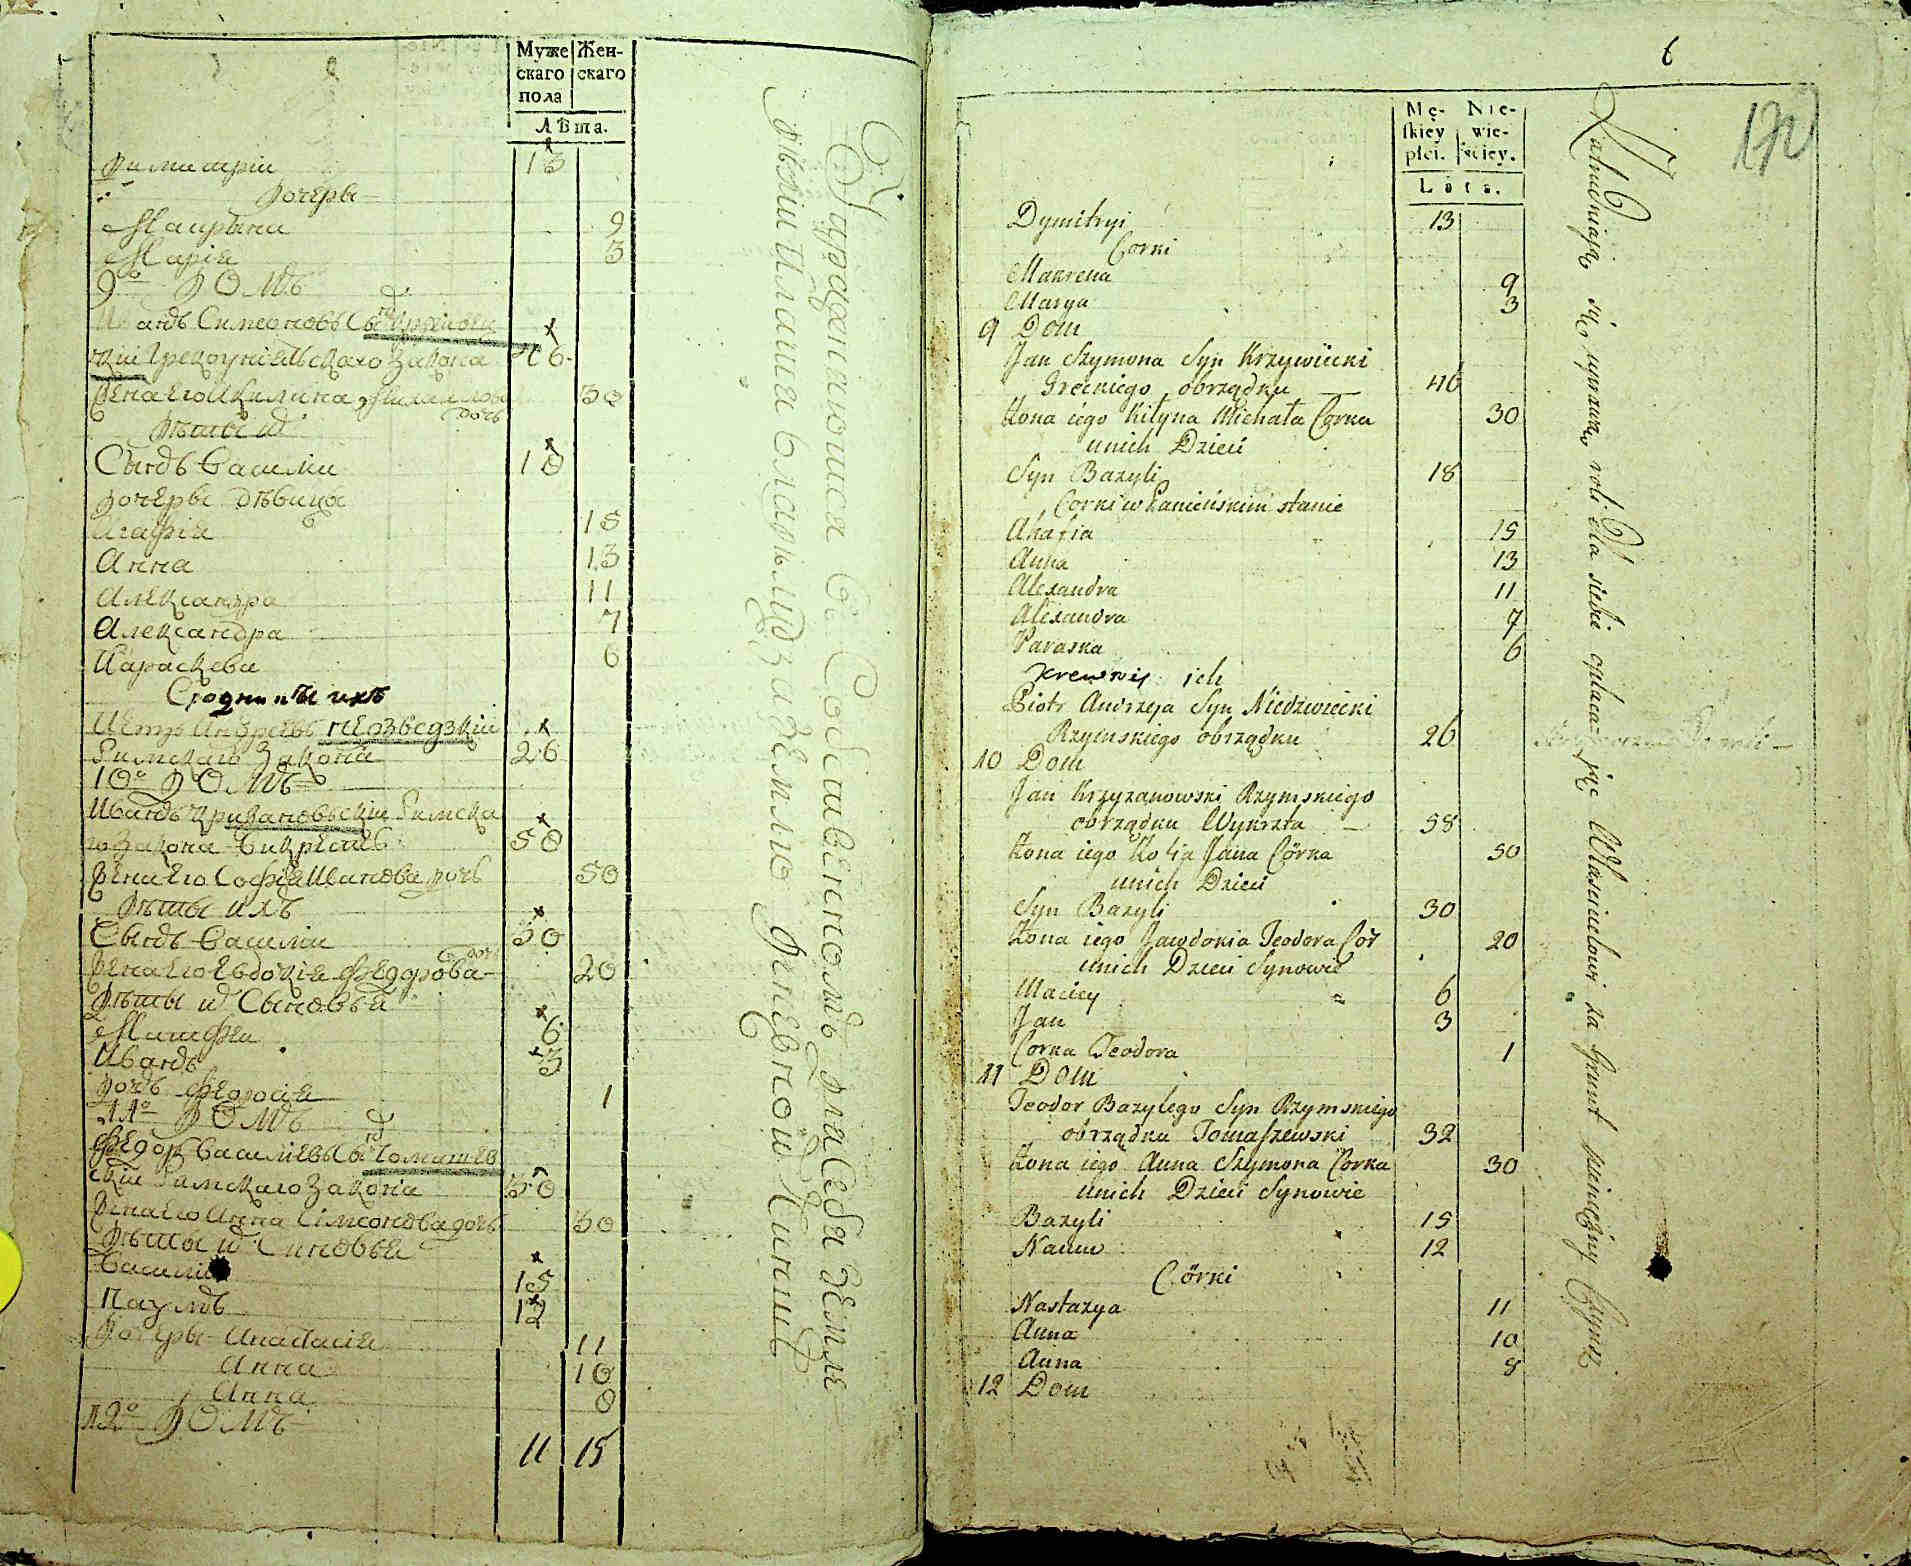 Муже Жен-
скаго скаго
пола
Лѣта.
Димитрій 13
Дочеры
Маирына 9
Марія 3
9о ДОМЪ
Иванъ Симеоновъ Сынъ
Грекоуніатскаго Закона 46
Жена его Михайлова дочь 30
Дѣты ихъ
Сынъ Василии 18
Дочеры дѣвица
Агафія 15
Анна 13
Александра 11
Александра 7
Параскева 6
Сродникы ихъ
Петръ Андреевъ Незведзкій
Римскаго Закона 26
10о ДОМЪ
Иванъ Крижановьскій Римска
го Закона Викрестъ 58
Жена его Софія Иванова дочь 50
Дѣты ихъ
Сынъ Василии 30
Жена его Евдокія Федорова дочь 20
Дѣты ихъ Сыновья
Матфеи 6
Иванъ 3
Дочь Феодосія 1
11о ДОМЪ
Федоръ Василиевъ Сынъ Томашев
скій Римскаго Закона
Жена его Анна Симеонова дочь 30
Дѣты ихъ Синовья
Василій 15
Наумъ 12
Дочеры Анастасія 11
Анна 10
Анна 8
12о ДОМЪ
11 15
Упражняющися въ Собственномъ для Себя Земле
дѣліи Платя Владѣлцу за Землю Денежной Чиншъ
6
192
Mę- Nie-
skiey wie-
płci. ściey.
Lata.
Dymitryi 13
Corki
Makrena 9
Marya 3
9 Dom
Jan Szymona Syn Krzywiicki
Greckiego obrządku 46
Zona iego Kilyna Michała Corka 30
unich Dzieci
Syn Bazyli 18
Corki w Panieńskim stanie
Ahafia 15
Anna 13
Alexandra 11
Alexandra 7
Paraska 6
Krewny ich
Piotr Andrzeja Syn Niedzwiecki
Rzymskiego obrządku 26
10 Dom
Jan Krzyzanowski Rzymskiego
obrządku Wykrzta 58
Zona iego Zofia Jana Córka 50
unich Dzieci
Syn Bazyli 30
Zona iego Jawdokia Teodora Cór 20
unich Dzieci Synowie
Maciey 6
Jan 3
Corka Teodora 1
11 Dom
Teodor Bazylego Syn Rzymskiego
obrządku Tomaszewski 32
Zona iego Anna Szymona Corka 30
unich Dzieci Synowie
Bazyli 15
Naum 12
Córki
Nastazya 11
Anna 10
Anna 8
12 Dom
Zatrudniają się uprawą roli dla siebie opłacając Właścicielowi za Grunt pieniężny Czynsz